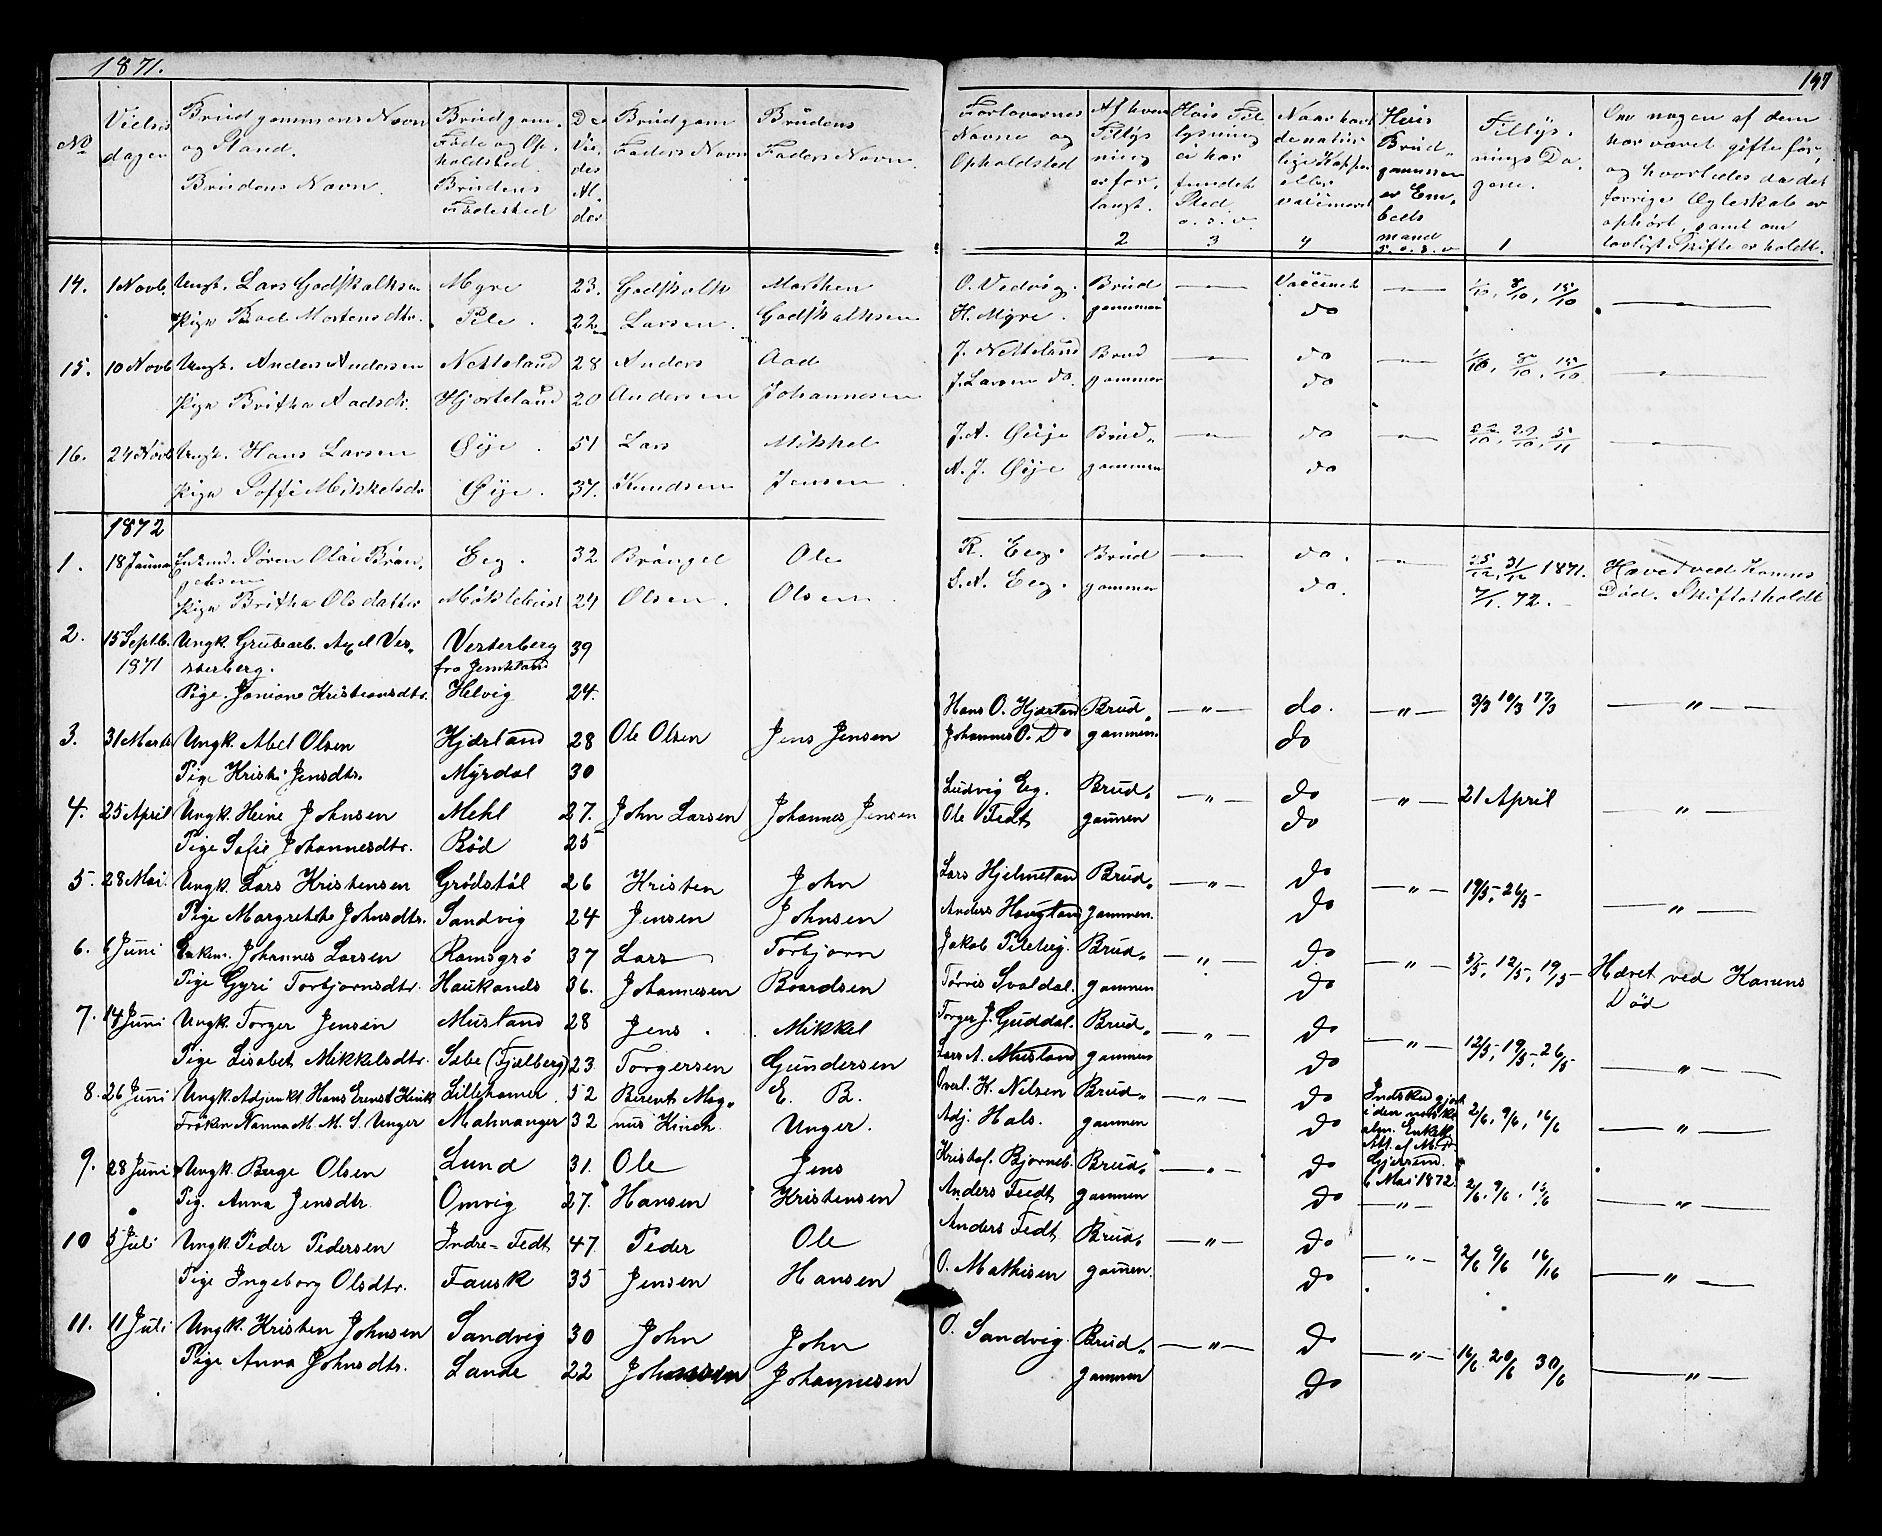 1871.
197
No
Vielses dagen
Brudgommens Navn og Stand. Brudens Navn.
Brudgom. Føde og Opholdsted. Brudens Fødested
Des Vies Alder
Brudgom Faders Navn
Brudens Faders Navn.
Forlovernes Navne og Opholdsted
Af hvem Tillysning er forlangt. 2
Hvis Tillysning ei har fundet Sted o. s. v. 3
4
Hvis Brudgommen er Embedsmand o. s. v
Tillysnings Dagene. 1
Om nogen af dem har været gifte før, og hvorledes da det forrige Ægteskab er ophørt, samt om lovligt Skifte er holdt.
14. 1 Novb. Ungk. Lars Godskalksen Myre 23. Godskalk Morthen O. Vedvig. Brud Vaccineret 1/10, 8/10, 15/10
Pige Mortensdtr. Pile. 22 Larsen. Godskalksen H. Myre. gommen do
15. 10 Novb Ungk. Anders Andersen Netteland 28 Anders Aad J. Netteland Brud do 1/10, 8/10, 15/10
Pige Britha Aadsdr. Hjorteland 20 Andersen Johannesen J. Larsen do. gommen do
16. 24 Novb Ungk. Hans Larsen Øÿe. 51 Lars Mikkel J. A. Øÿe Brud„ do 22/10, 29/10, 5/11
Pige Soffi Mikkelsdr Øÿe. 37. Knudsen Jensen. A. J. Øÿe gommen do
1872
1. 18 Janua Enkmd. Søren Olai Brøn, Eeg. 32 Brøngel Ole R. Eeg. Brud do. 25/12, 31/12 1871. Hævet ved Konens
gelsen
Pige Britha Olsdatter Møklebust 24 Olsen. Olsen S. A. Eeg. gommen do. 7/1. 72. Død. Skifteholdt
2. 15 Septb. Ungk. Grubearb. Axel Ves„ Vesterberg 39
1871 sterberg. fra Jemteland
Pige. Janione Kristiansdtr. Helvig 24.
3. 31 Marts Ungk. Abel Olsen Hjørland 28 Ole Olsen Jens Jensen Hans O. Hjørland Brud„ — „ — do. — „ — 3/3 10/3 17/3 — „ —
Pige Kristi Jensdtr. Myrdal 30 Johannes O. Do gommen. do
4. 25 April Ungk. Heine Johnsen Mehl 27. John Larsen Johannes Jensen Ludvig Eg. Brud„ — „ — do — „ — 21 April — „ —
Pige Sofie Johannesdtr. Rød 25 Ole Fedt gommen do
5. 28 Mai. Ungk. Lars Kristensen Grødstøl 26 Kristen John Lars Hjelmeland Brud„ — „ — do — „ — 19/5, 26/5 — „ —
Pige Margrethe Johnsdtr. Sandvig 24 Jensen Johnsen Anders Haugland gommen. do
6. 6 Juni Enkm. Johannes Larsen Ramsgrø 37 Lars Torbjorn Jakob Brud„ — „ — do — „ — 5/5, 12/5, 19/5 Hævet ved Konens
Pige Gyri Torbjornsdtr. Haukanæs 36. Johannesen Baardsen Tørris Svaldal. gommen do Død
7. 14 Juni Ungk. Torger Jensen Musland 28 Jens. Mikkel Torger J. Guddal. Brud„ — „ — do — „ — 12/5, 19/5, 26/5 — „ —
Pige Lisabet Mikkelsdtr. Sæbe (Fjelberg) 23 Torgersen Gundersen Lars A. Musland gommen do
8. 26 Juni Ungk. Adjunkt Hans Ernst Kinck Lillehamer. 52 Berent Mag„ E. B. Overl. K. Nilsen Brud„ — „ — do Indskud gjort 2/6, 9/6, 16/6 — „ —
Frøken Nanna M. M. S. Unger Malmanger 32 nus Kinck. Unger. Adj. Hals. gommen do i den norske
alm. Enkek.
Att. af M. D
Gjersem.
6 Mai 1872.
9. 28 Juni Ungk. Berge Olsen Lund 31. Ole Jens Kristof. Bjørneb. Brud„ — „ — do — „ — 2/6, 9/6, 15/6 — „ —
Pig. Anna Jensdtr. Omvig 27. Hansen Kristensen Anders Fedt gommen do
10 5 Juli Ungk. Peder Pedersen Indre-Fedt 47. Peder Ole Anders Fedt Brud„ — „ — do — „ — 2/6 9/6 16/6 — „ —
Pige Ingeborg Olsdtr. Fausk 35 Jensen Hansen O. Mathisen gommen. do
11. 11 Juli Ungk. Kristen Johnsen Sandvig 30 John John O. Sandvig. Brud„ — „ — do — „ — 16/6 20/6 30/6 — „ —
Pige Anna Johnsdtr. Lande 22 Johannesen gommen do